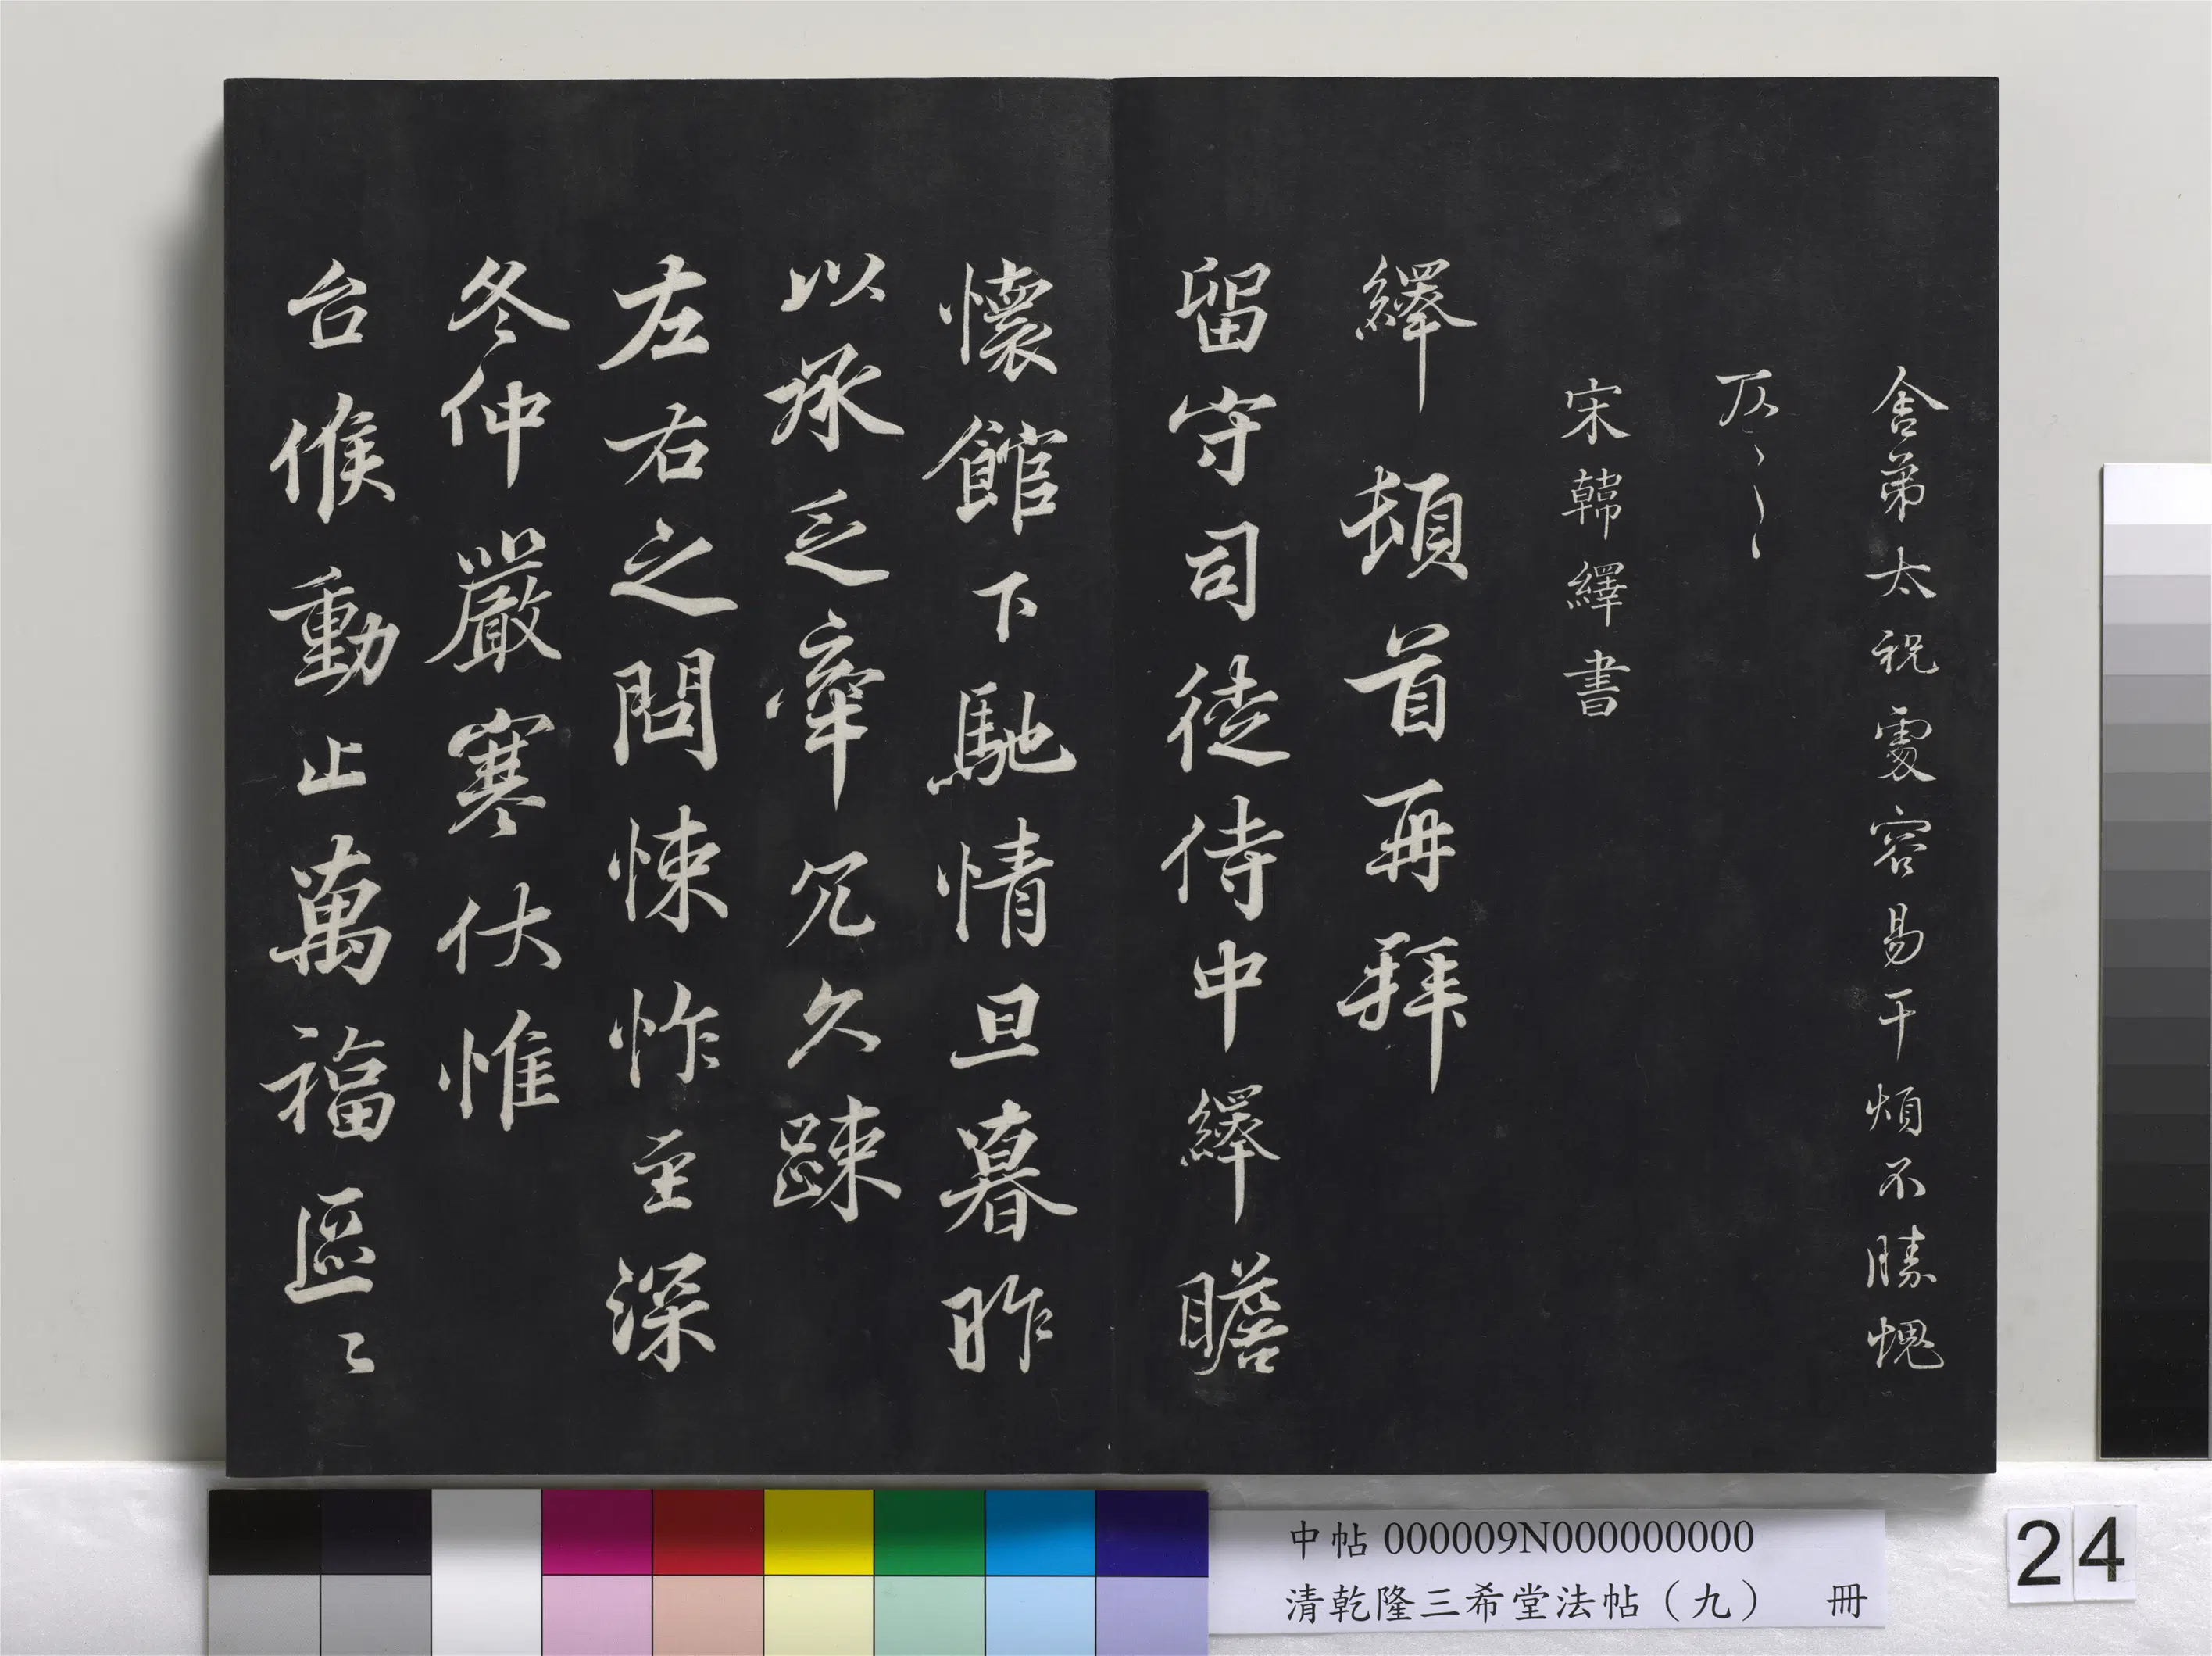 舍弟太祝處容易干煩不勝愧
仄〻〻〻
宋韓繹書
繹頓首再拜
留守司徒侍中繹瞻
懷館下馳情旦暮昨
以承乏牽冗久踈
左右之問悚怍至深
冬仲嚴寒伏惟
台候動止萬福區〻
中帖 000009N000000000
清乾隆三希堂法帖（九） 冊
24